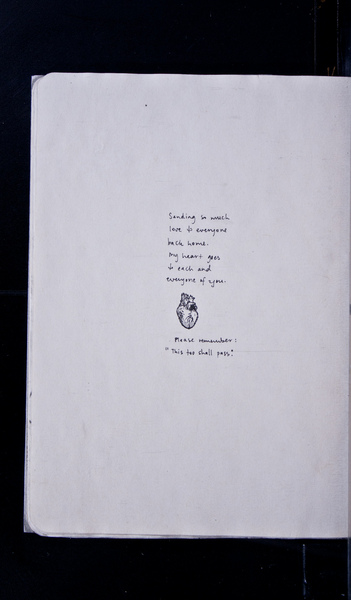 Sending so much
love to everyone
back home.
My heart goes
to each and
everyone of you.
Please remember:
"This too shall pass."